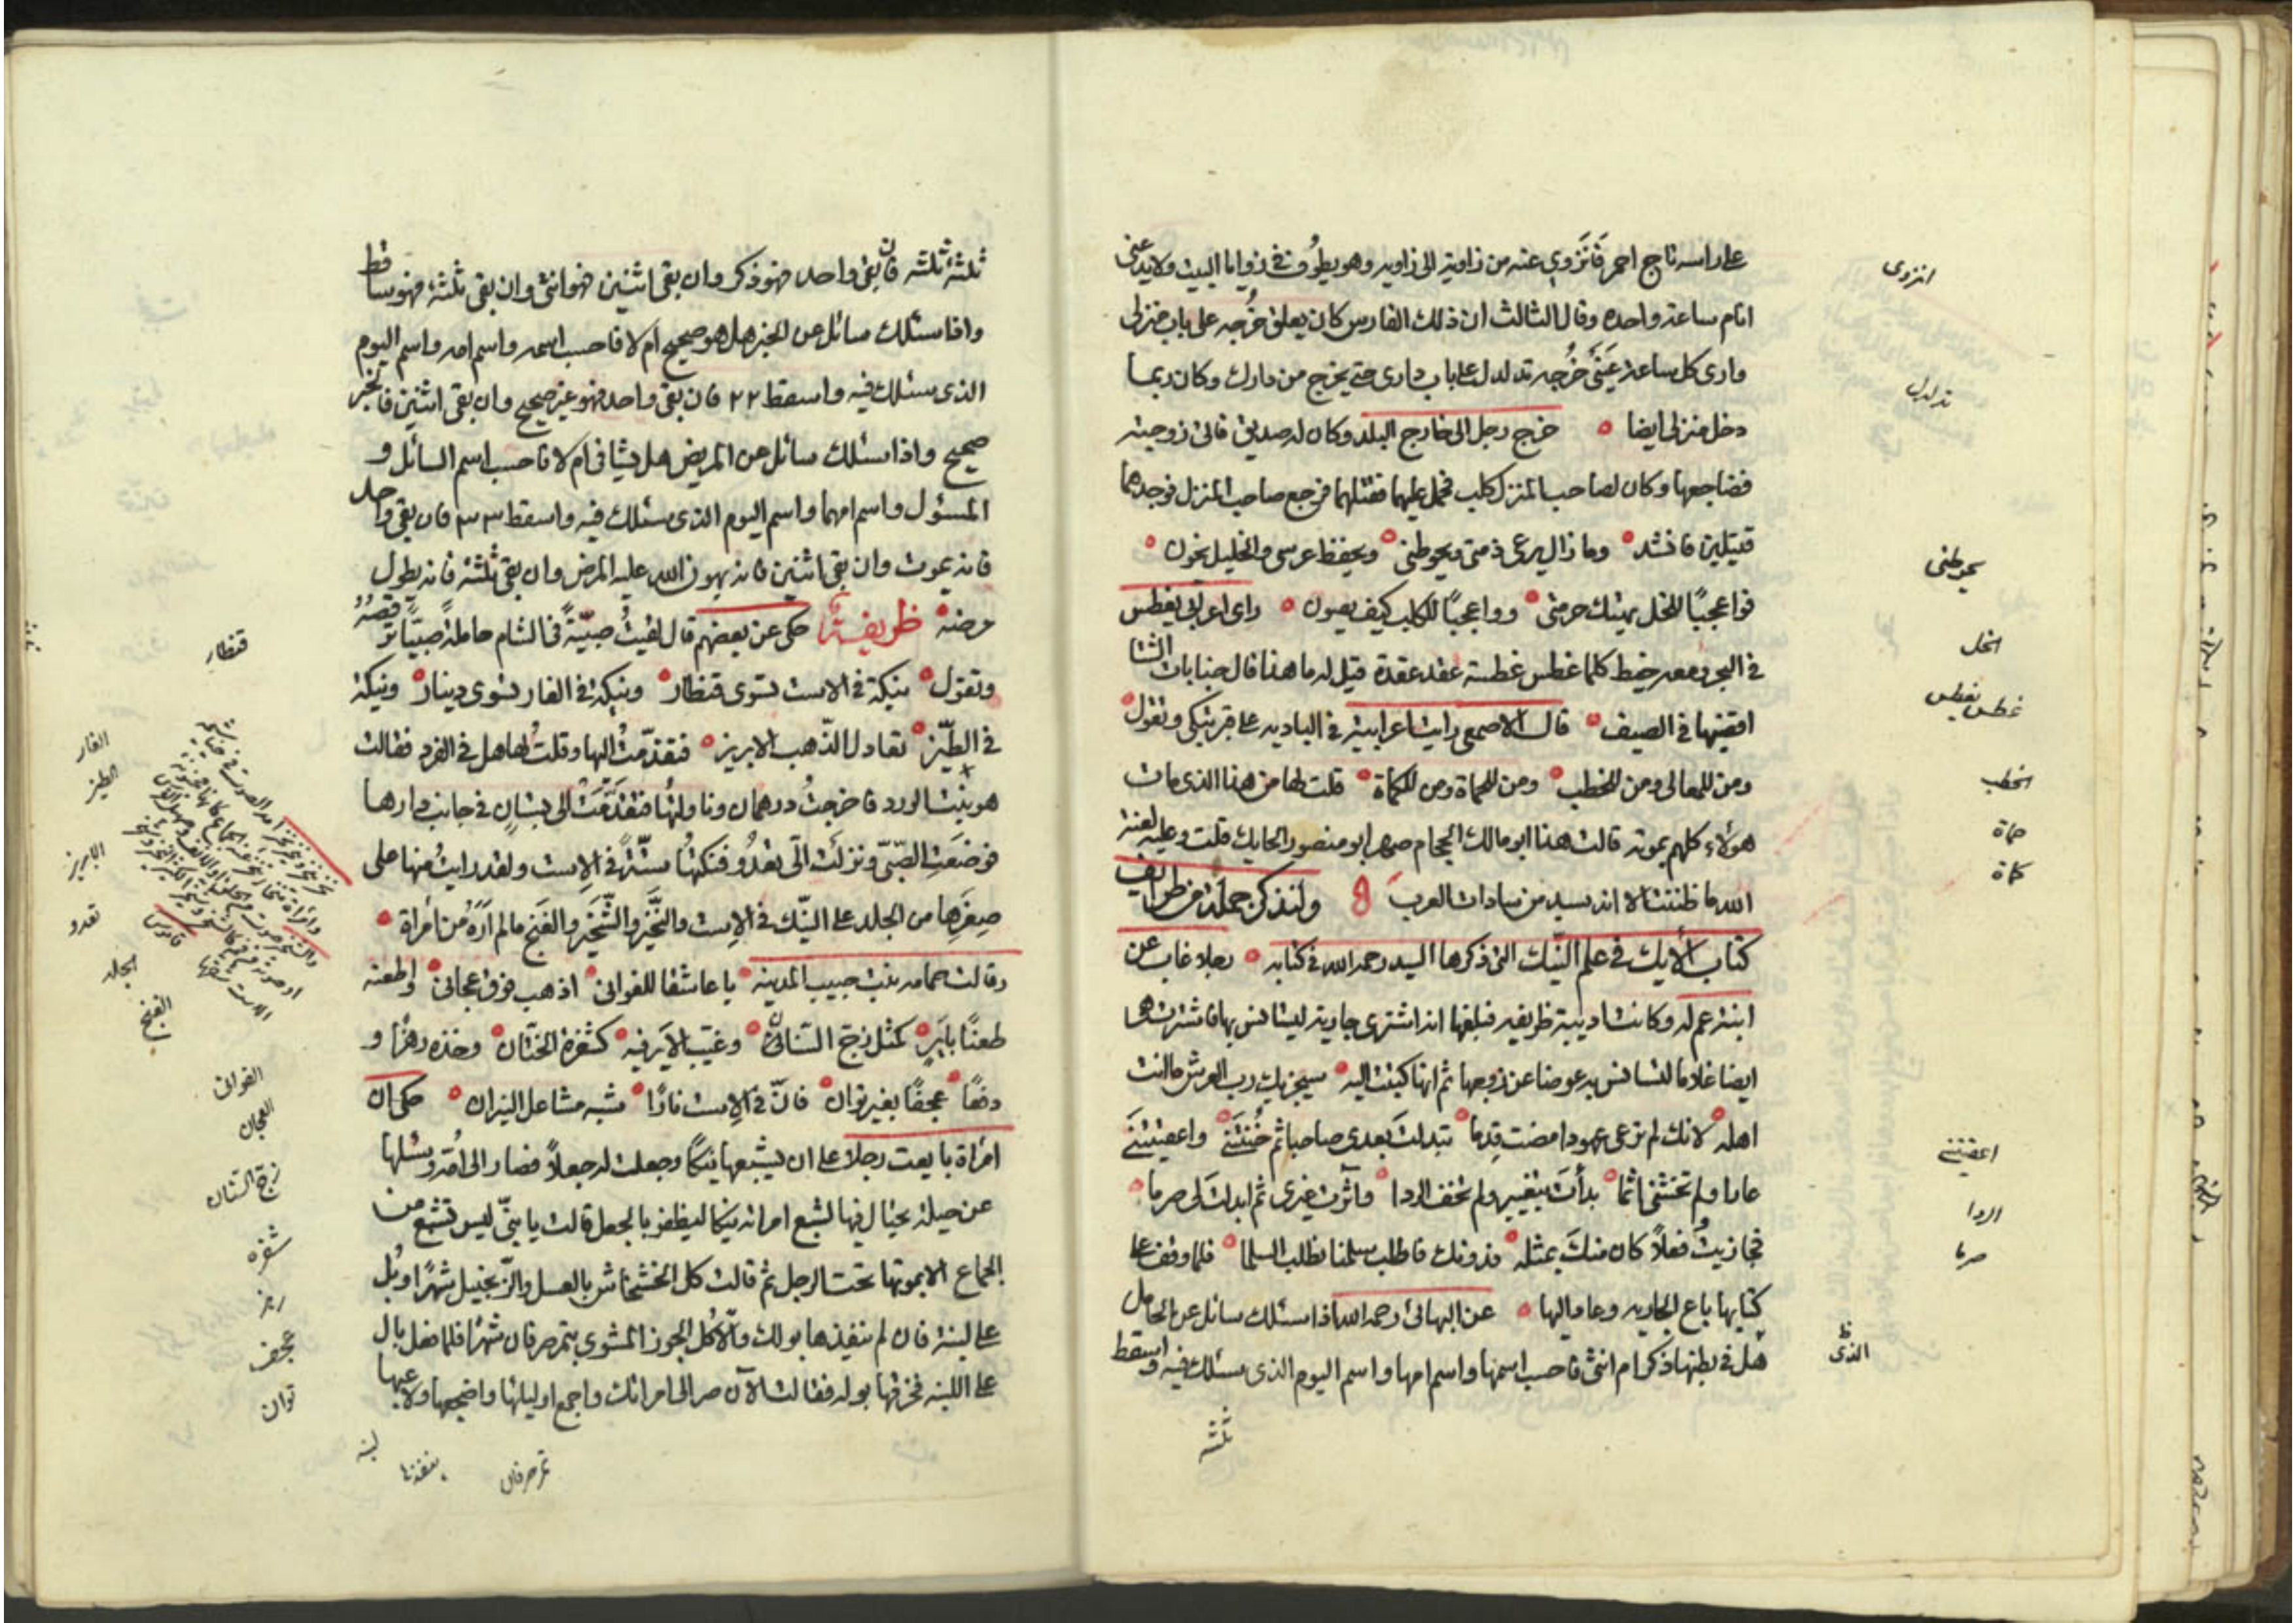 على راسه تاج احمر فانزوي عنه من زاوية الى زاويه وهو يطوف في زوايا البيت ولا يدعني
انام ساعة واحده وقال الثالث ان ذلك الفارس كان يعلق خرجه على باب منزلى
وارى كل ساعة خرجه تدلدل على باب دارى حتى يخرج من دارك وكان ربما
دخل منزلى ايضا خرج رجل الى خارج البلد وكان له صديق فاتى زوجته
فضاجعها وكان لصاحب المنزل كلب فحمل عليهما فقتلهما فرجع صاحب المنزل فوجدهما
قتيلين فانشد وما زال يرعى ذمتى ويحوطنى ويحفظ عرسى والخليل يخون
فواعجبًا للخل يهتك حرمتى وواعجبًا للكلب كيف يصون راى اعرابى يغطس
في البحر ومعه خيط كلما غطس غطسة عقد عقدة قيل له ما هذا قال جنابات الشتا
اقضيها في الصيف قال الاصمعى رايت اعرابية في البادية على قبر تبكى وتقول
ومن للمعالى ومن للخطب ومن للحماة ومن للكماة قلت لها من هذا الذى مات
هولاء كلهم بموته قالت هذا ابو مالك الحجام صهر ابو منصور الحايك قلت وعليه لعنة
الله ما ظننت الا انه سيد من سادات العرب ولنذكر جملة من ظرايف
كتاب الأيك في علم النيك التى ذكرها السيد رحمه الله في كتابه رجلا غاب عن
ابنة عم له وكانت اديبة ظريفه فبلغها انه اشترى جارية ليستانس بها فاشترت
ايضا غلاما لتستانس به عوضا عن زوجها ثم انها كتبت اليه سيجزيك رب العرش ما انت
اهله لانك لم ترعى عهودا مضت قدما تبدلت بعدى صاحبا ثم خنتنى واعضتنى
عارا ولم تخشى اثما بدأت بتغيير ولم تخف الردا واثرت غيرى ثم ابدلت لى صرما
فجازيت فعلاً كان منك بمثله فدونك فاطلب سلمنا نطلب السلما فلما وقف على
كتابها باع الجاريه وعاد اليها عن البهائى رحمه الله اذا سئلك سائل عن الحامل
هل في بطنها ذكر ام انثى فاحسب اسمها واسم امها واسم اليوم الذى سئلك فيه واسقط
ثلثة
انزوى
تدلدل
يحوطنى
الخل
غطس يغطس
الخطب
حماة
كماة
اعضتنى
الردا
صرما
الذى
ثلثة ثلثة فان بقى واحد فهو ذكر وان بقى اثنين فهو انثى وان بقى ثلثة فهو ساقط
واذا سئلك سائل عن الخبر هل هو صحيح ام لا فاحسب اسمه واسم امه واسم اليوم
الذى سئلك فيه واسقط ٢٢ فان بقى واحد فهو غير صحيح وان بقى اثنين فالخبر
صحيح واذا سئلك سائل عن المريض هل يشافى ام لا فاحسب اسم السائل و
المسؤل واسم امهما واسم اليوم الذى سئلك فيه واسقط ٣٣ فان بقى واحد
فانه يموت وان بقى اثنين فانه يهون الله عليه المرض وان بقى ثلثة فانه يطول
مرضه ظريفة حكى عن بعضهم قال لقيت صبيّةً في الشام حاملةً صبيًّا ترقصه
وتقول نيكة في الاست تسوى قنطار ونيكة في الفار تسوى دينار ونيكة
في الطيّز تعادل الذهب الابريز فتقدّمت اليها وقلت لها هل في الفرد فقالت
هو بنت الورد فاخرجت درهمان وناولتها فتقدّمت الى بستان في جانب دارها
فوضعت الصبىّ ونزلت الىّ تعدو فنكتها ستّةً في الاست ولقد رايت منها على
صغرها من الجلد على النيك في الاست والنّخر والشّخر والغنج ما لم اره من امرأة
وقالت حمامه بنت حبيب المدينه يا عاشقا للغوانى اذهب فوق عجانى واطعنه
طعنًا باير كمثل زج السنان وغيّب الاير فيه كشفرة الختان وخذه رهزًا و
دفعًا عجفًا بغير توان فانّ في الاست نارًا شبه مشاعل النيران حكى ان
امرأة بايعت رجلا على ان يشبعها نيكًا وجعلت له جعلاً فصار الى امّه يسئلها
عن حيلة يحتال فيها لشبع امراته نيكا ليظفر بالجعل قالت يا بنىّ ليس تشبع من
الجماع الا بموتها تحت الرجل ثم قالت كل الخشخاش بالعسل والزنجبيل شهرًا وبُل
على لبنة فان لم ينفذها بولك والّا كل الجوز المشوى بتمر صرفان شهرًا فلما فعل بال
على اللبنة فخرقها بوله فقالت الآن صر الى امراتك واجمع اوليائها واضجعها ولاعبها
قنطار
الفار
الطيز
الابريز
تعدو
الجلد
الغنج
الغوانى
العجان
زج السنان
شفره
رهز
عجف
توان
لبنه
ينفذها
تمر صرفان
قاموس